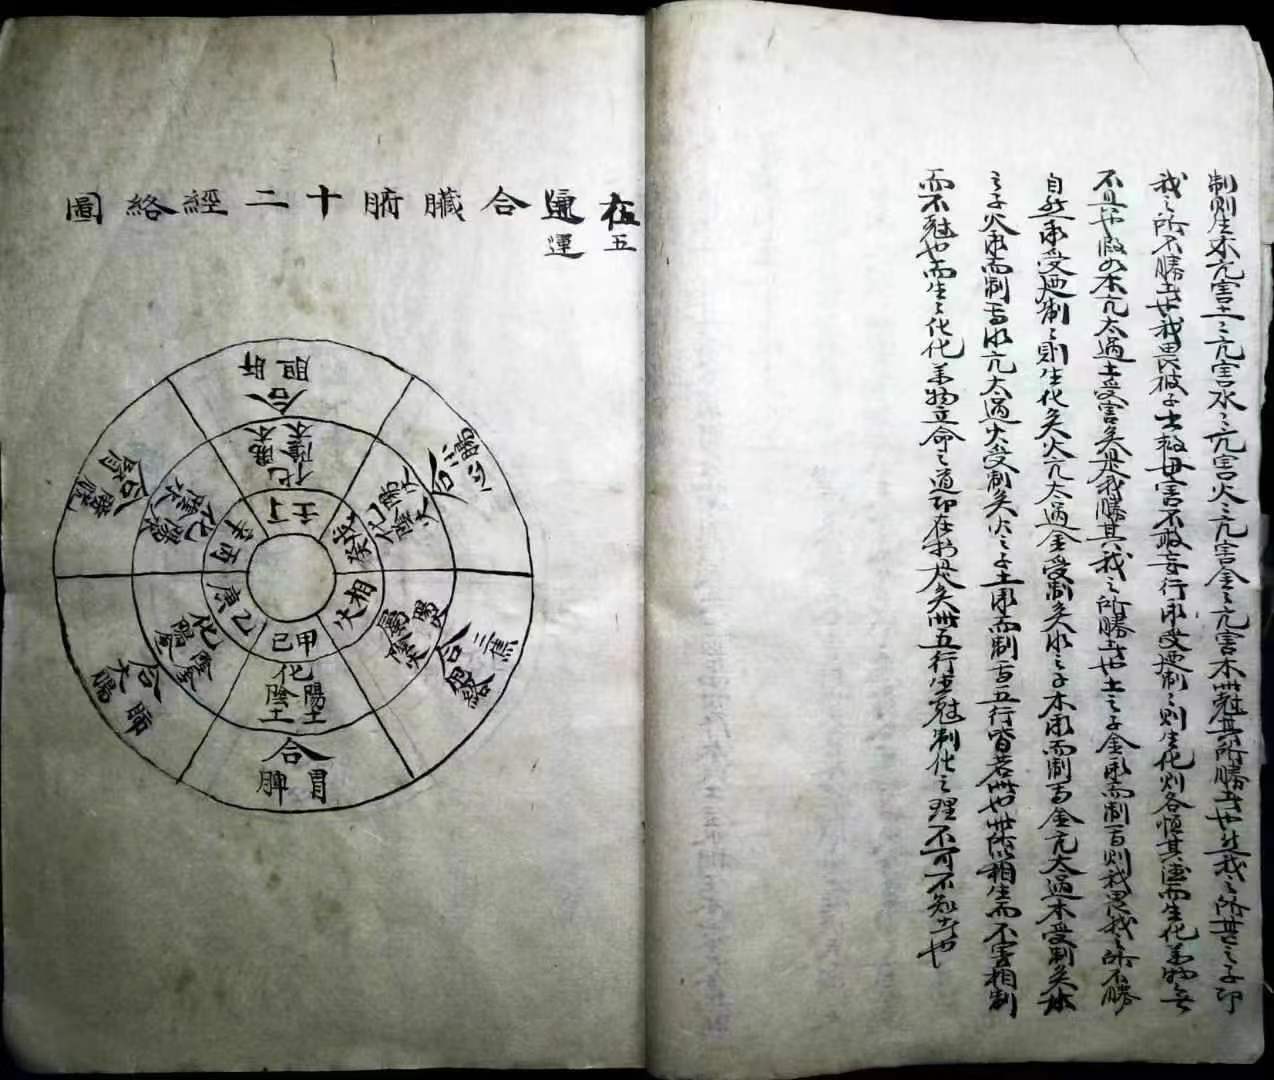 制則生木亢害土〻亢害水〻亢害火〻亢害金〻亢害木此尅其所勝者也然我之所其之子即
我之所不勝者也我畏彼子出救母害不敢妄行承受廼制〻則生化則各恒其德而生化萬物無
不具也假如木亢太過土受害矣是我勝其我之所勝者也土之子金承而制焉則我畏我之所不勝
自然承受廼制〻則生化矣火亢太過金受制矣水之子木承而制焉金亢太過木受制矣木
之子火承而制焉水亢太過火受制矣火之子土承而制焉五行皆若此也此所以相生而不害相制
而不尅也而生〻化化萬物立命之道即在於是矣此五行生尅制化之理不可不知者也
五運
合臟腑十二經絡圖
膽肝
合
陰木陽木
化
丁壬
心小腸
合
陽火陰火
化
戊癸
三焦
合包絡
陽火
屬陰火
相火
甲己
化
陽土陰土
合
胃脾
肺
合大腸
陰金
化陽金
乙庚
合腎膀胱
化陰水陽水
丙辛